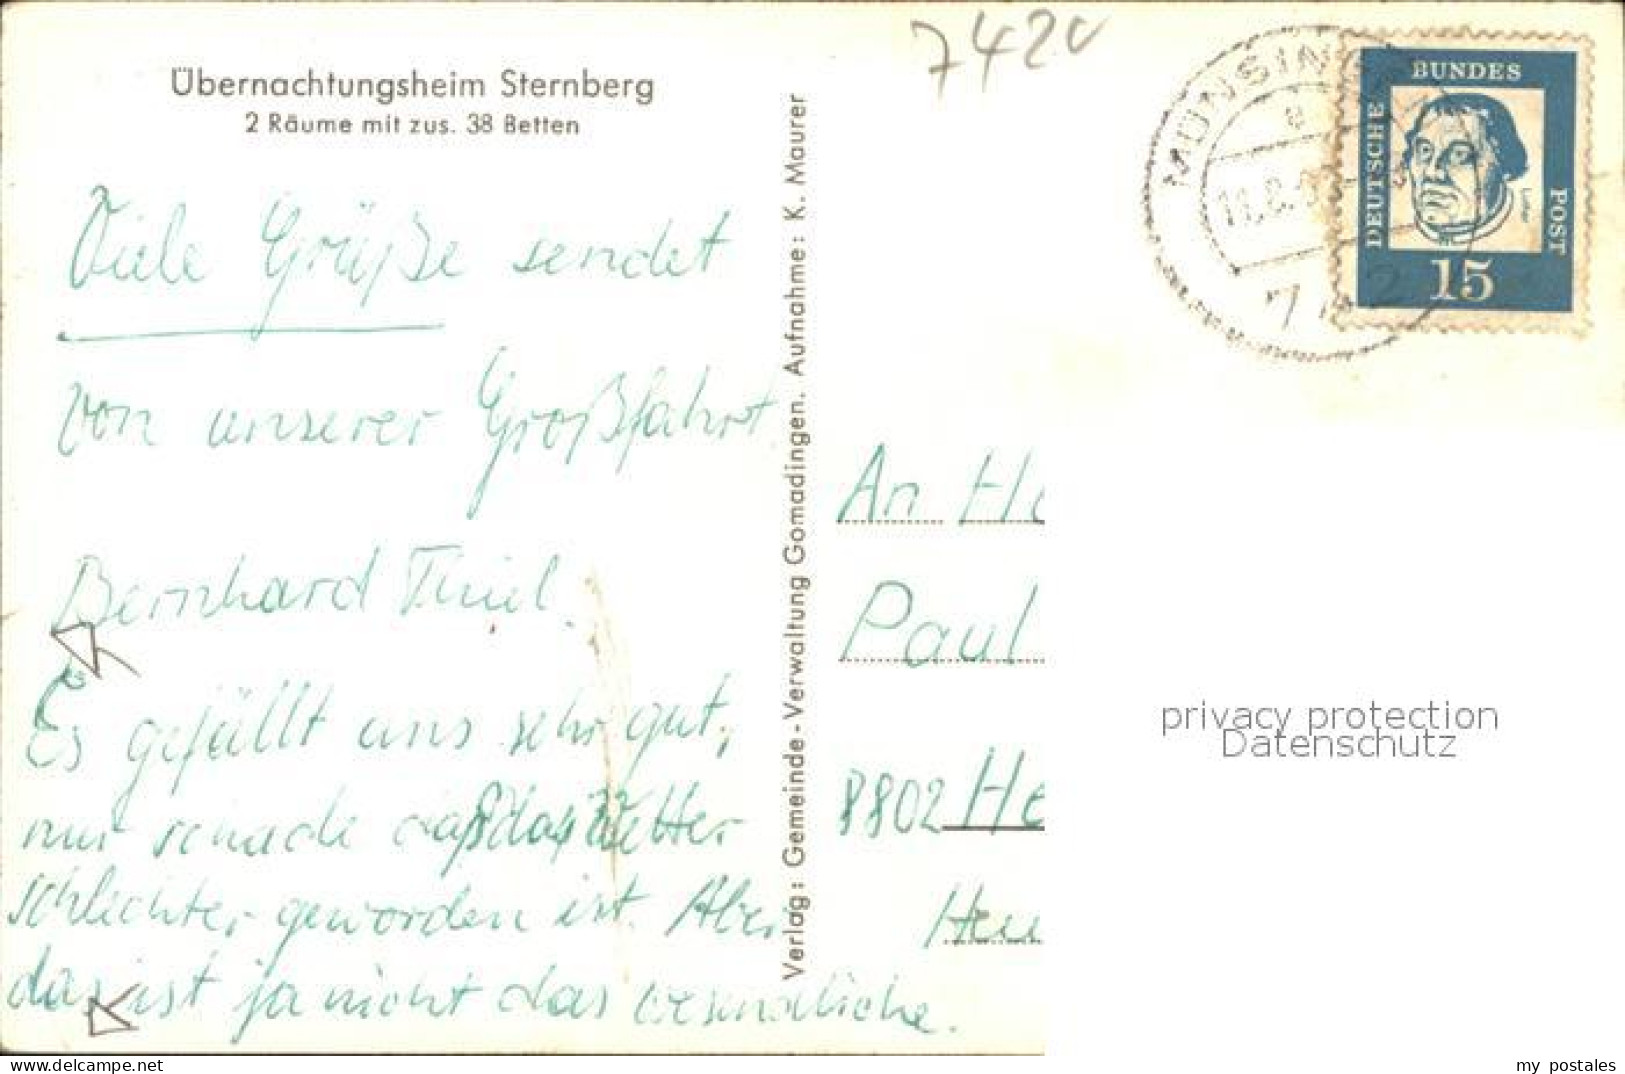 Übernachtungsheim Sternberg
2 Räume mit zus. 38 Betten
Viele Grüße sendet
von unserer Großfahrt
Bernhard Thiel.
Es gefällt uns sehr gut,
nur schade daß das Wetter
schlechter geworden ist. Aber
das ist ja nicht das
Verlag: Gemeinde-Verwaltung Gomadingen. Aufnahme: K. Maurer
7420
MÜNSING
742
DEUTSCHE
BUNDES
POST
Luther
15
An He
Paul
8802 He
privacy protection
Datenschutz
my postales